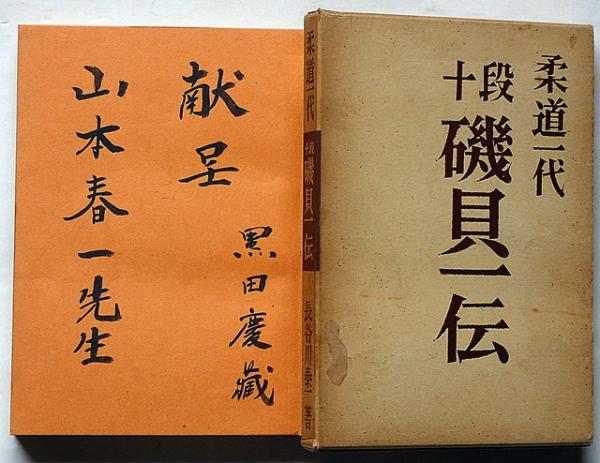 柔道一代
十段
磯貝一伝
柔道一代
十段
磯貝一伝
長谷川泰一著
献呈
山本春一先生
黒田慶蔵